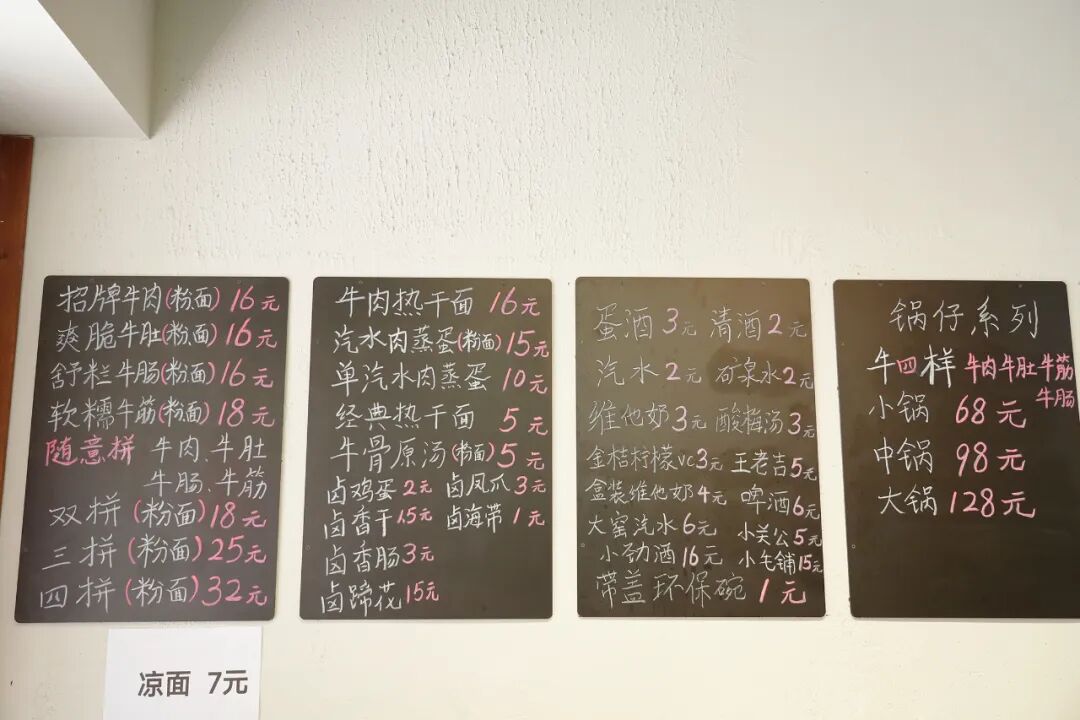 招牌牛肉(粉面)16元
爽脆牛肚(粉面)16元
舒粑牛肠(粉面)16元
软糯牛筋(粉面)18元
随意拼 牛肉、牛肚
牛肠、牛筋
双拼(粉面)18元
三拼(粉面)25元
四拼(粉面)32元
凉面 7元
牛肉热干面 16元
汽水肉蒸蛋(粉面)15元
单汽水肉蒸蛋 10元
经典热干面 5元
牛骨原汤(粉面)5元
卤鸡蛋2元 卤凤爪3元
卤香干1.5元 卤海带1元
卤香肠3元
卤蹄花15元
蛋酒3元 清酒2元
汽水2元 矿泉水2元
维他奶3元 酸梅汤3元
金桔柠檬vc3元 王老吉5元
盒装维他奶4元 啤酒6元
大窑汽水6元 小关公5元
小劲酒16元 小毛铺15元
带盖环保碗1元
锅仔系列
牛四样 牛肉牛肚牛筋
牛肠
小锅 68元
中锅 98元
大锅 128元